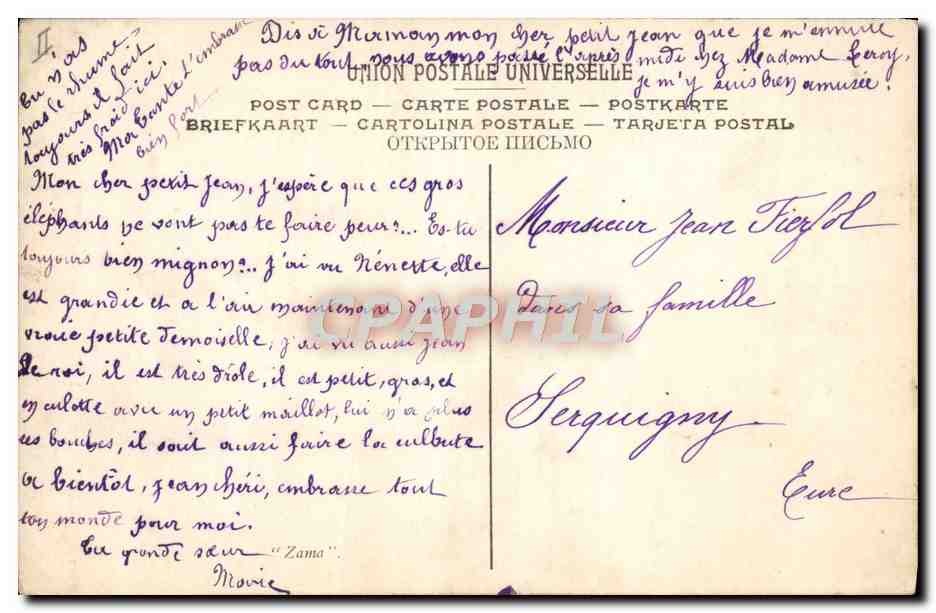 II
Dis à Maman mon cher petit Jean que je m'ennuie
pas du tout nous avons passé l'après midi chez Madame Leroy,
je m'y suis bien amusée.
Tu n'as
pas le rhume?
toujours il fait
très froid ici.
Ma tante t'embrasse
bien fort
UNION POSTALE UNIVERSELLE
POST CARD — CARTE POSTALE — POSTKARTE
BRIEFKAART — CARTOLINA POSTALE — TARJETA POSTAL
ОТКРЫТОЕ ПИСЬМО
Mon cher petit Jean, j'espère que ces gros
éléphants ne vont pas te faire peur?... Es-tu
toujours bien mignon?.. J'ai vu Nénette, elle
est grandie et a l'air maintenant d'une
vraie petite demoiselle, j'ai vu aussi Jean
Le roi, il est très drôle, il est petit, gros, et
en culotte avec un petit maillot, lui n'a plus
ses bouches, il sait aussi faire la culbute
a bientôt, Jean chéri, embrasse tout
ton monde pour moi.
Ta grande sœur "Zama".
Marie
Monsieur Jean Fierfol
dans sa famille
Serquigny
Eure
CPAPHIL.com